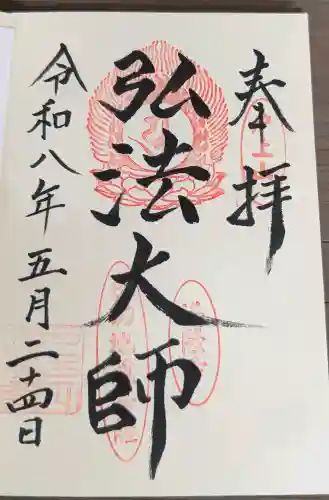 奉拝
弘法大師
令和八年五月二十四日